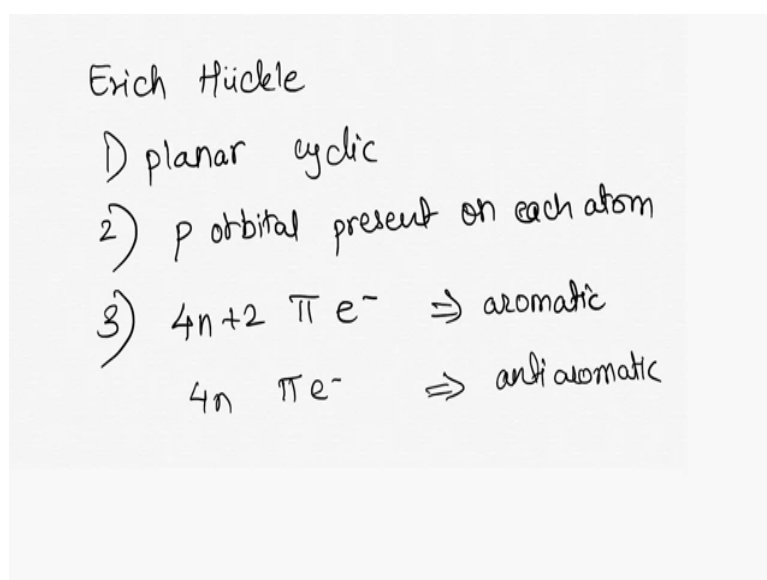 Erich Hückle
1) planar cyclic
2) p orbital present on each atom
3) 4n+2 π e⁻ ⇒ aromatic
4n π e⁻ ⇒ anti aromatic